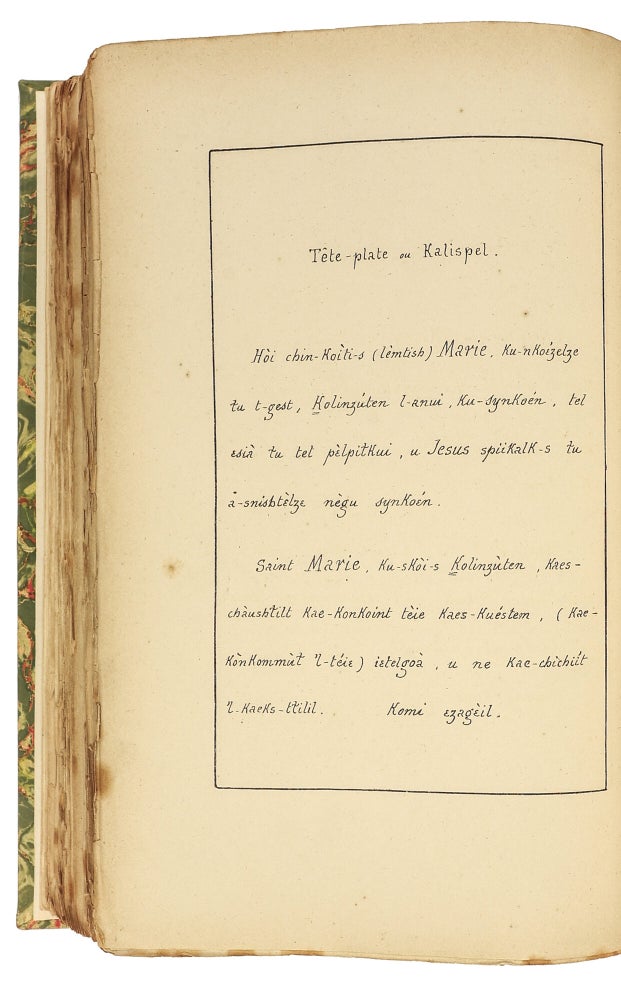 Tête-plate ou Kalispel.
Hòi chin-Koìti-s (lèmtish) Marie, Ku-nKoizelze
tu t-gest, Kolinzúten l-anui, Ku-synKoén, tel
esià tu tel pèlpitKui, u Jesus spiiKalK-s tu
à-snishtèlze nègu synKoén.
Saint Marie, Ku-sKòi-s Kolinzùten, Kaes-
chàushtilt Kae-KonKoint tèie Kaes-Kuéstem, (Kae-
KònKommùt 'l-téie) ietelgoà, u ne Kae-chìchiit
'l-KaeKs-ttlilil. Komi ezagèil.